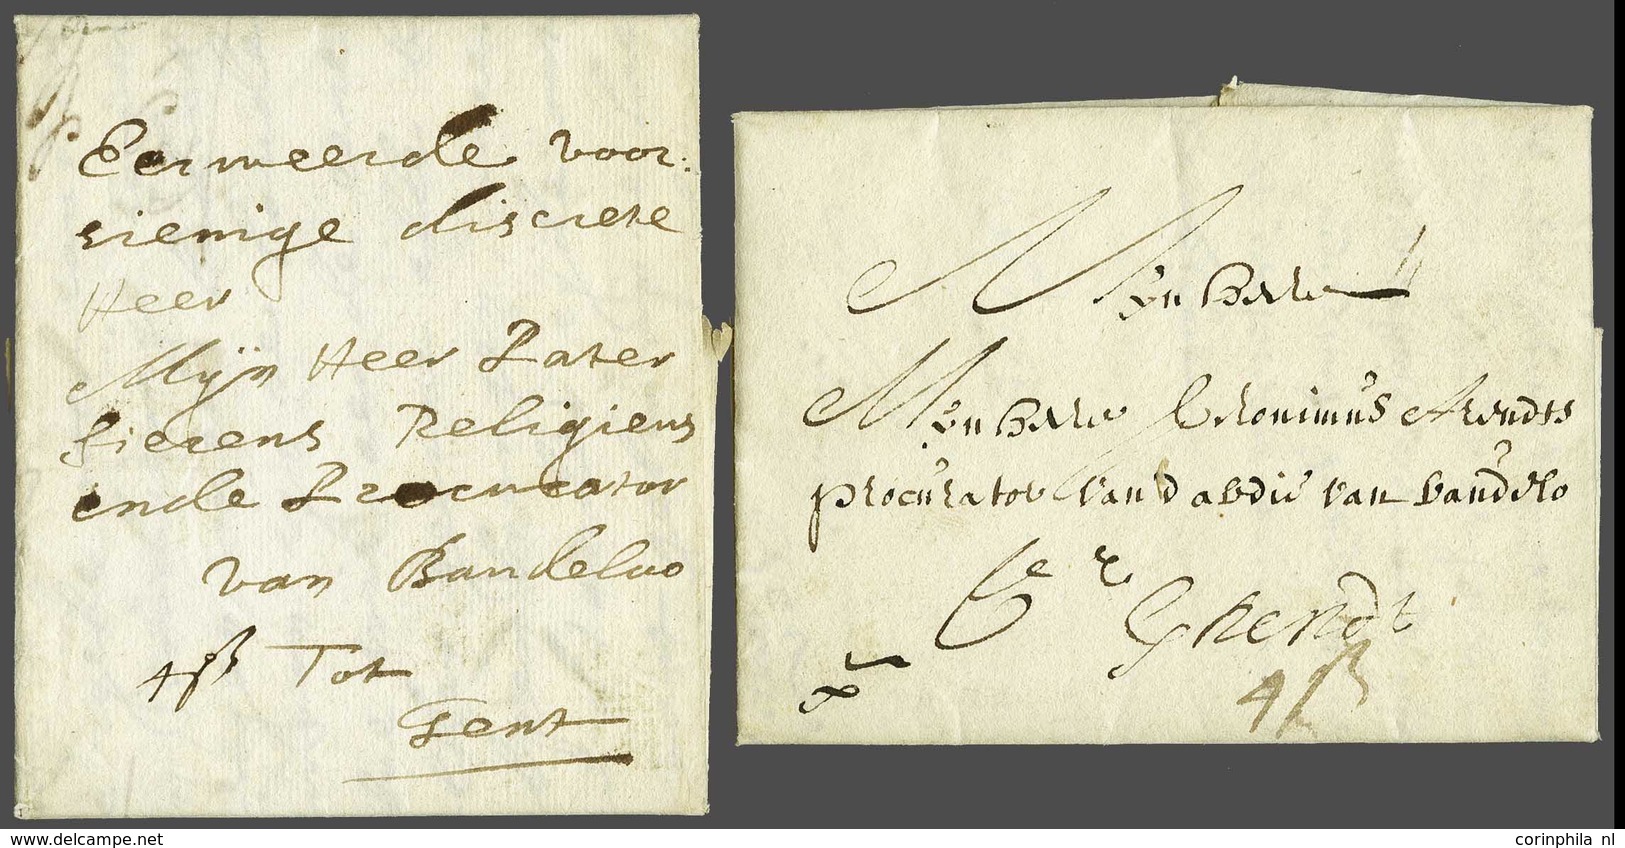 Eerweerde voor:
sienige discrete
Heer
Mijn Heer Pater
Sierens Religieus
ende Procurator
van Baudeloo
4ß Tot
Gent
Mijn heere
Mijn heere Jeronimus Arendts
procurator van d abdie van baudelo
Ghendt
4ß
www.delcampe.net
corinphila nl